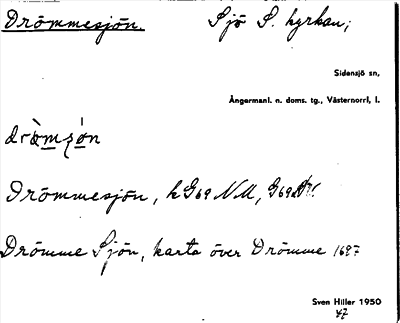 Drömmesjön. Sjö S. kyrkan;
Sidensjö sn,
Ångermanl. n. doms. tg., Västernorrl, l.
Drömmesjön, hG69 NM,
Drömme Sjön, karta över Drömme 1697
Sven Hiller 1950
47